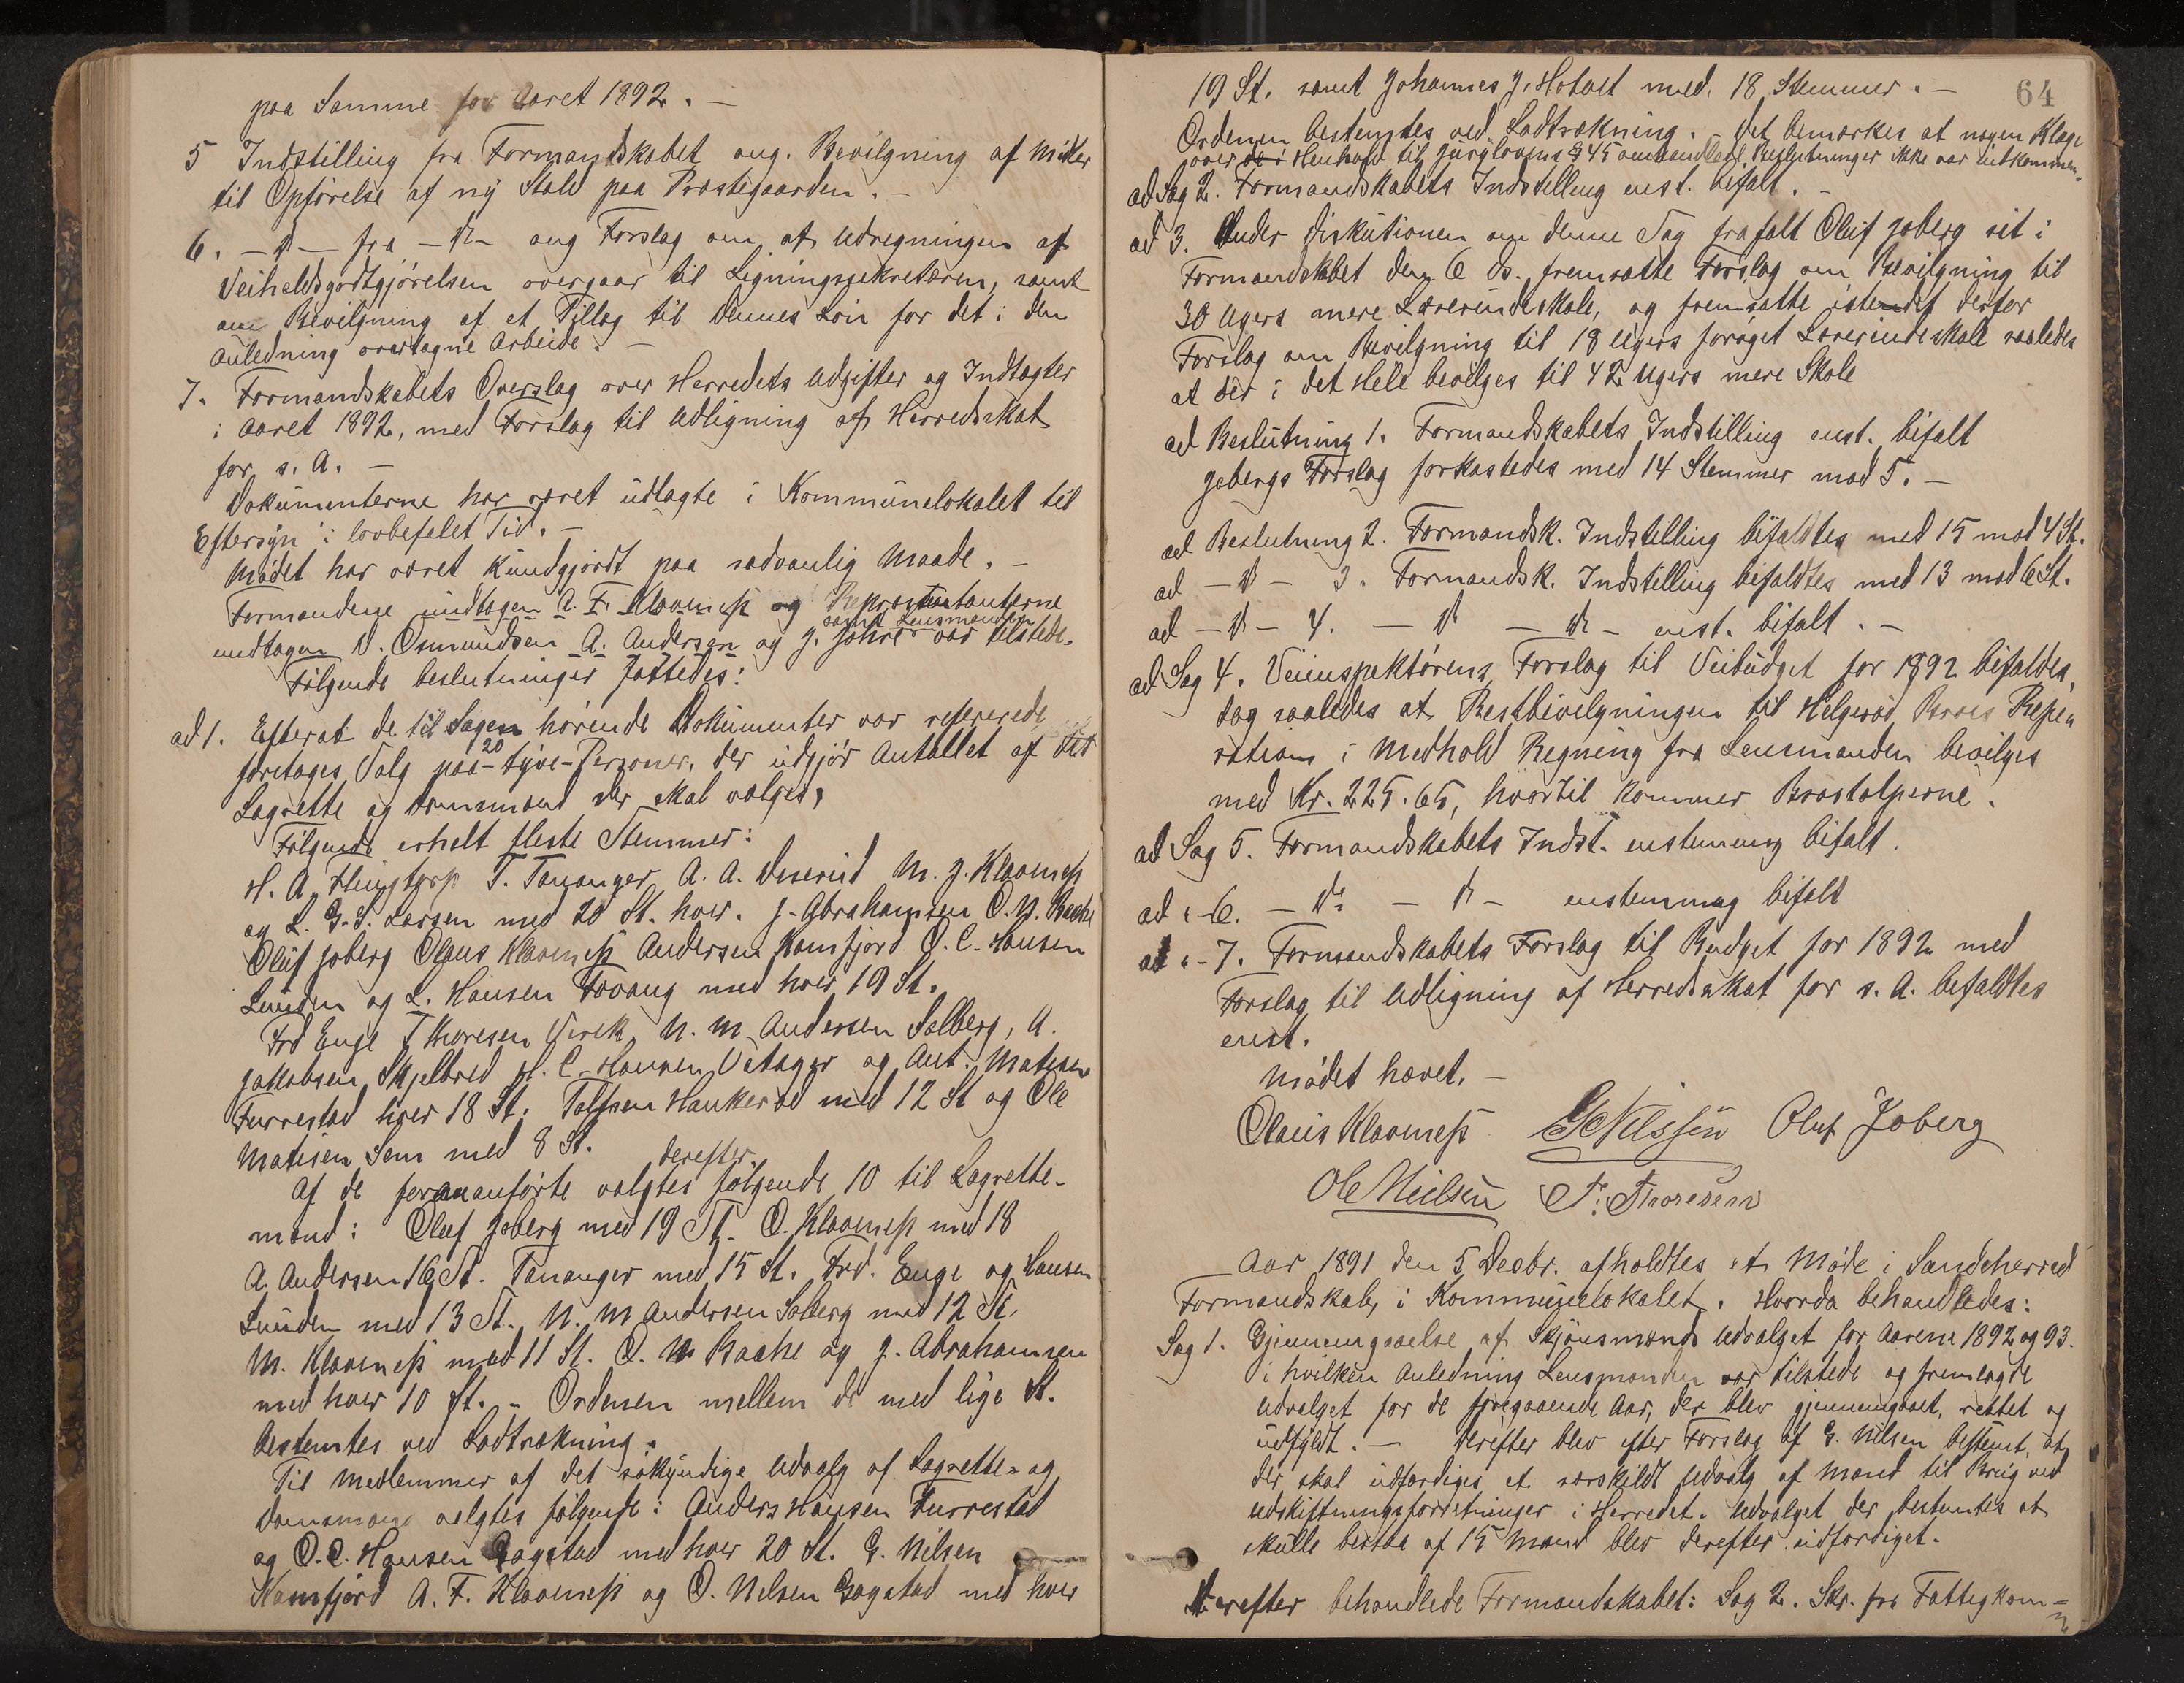 paa Samme for Aaret 1892. —
5 Indstilling fra Formandskabet ang. Bevilgning af Midler
til Opførelse af ny Stald paa Præstegaarden. —
6. — d — fra — do — ang Forslag om at Udregningen af
Veiholdsgodtgjørelsen overgaar til Ligningssekretæren, samt
om Bevilgning af et Tillæg til dennes Løn for det i den
Anledning overtagne Arbeide. —
7. Formandskabets Overslag over Herredets Udgifter og Indtægter
i Aaret 1892, med Forslag til Udligning af Herredsskat
for s. A. —
Dokumenterne har været udlagte i Kommunelokalet til
Eftersyn i lovbefalet Tid. —
Mødet har været kundgjordt paa sædvanlig Maade. —
Formændene undtagen A. F. Klavenæss og Repræsentanterne
samt Lensmanden
undtagen N. Osmundsen A. Andersen og J. Johre var tilstede.
Følgende beslutninger fattedes:
ad 1. Efterat de til Sagen hørende Dokumenter var refererede
foretoges Valg paa - 20 tyve - Personer, der udgjør Antallet af det
Lagrette og Domsmænd der skal vælges,
Følgende erholt fleste Stemmer:
H. A. Flingtorp T. Tananger A. A. M. J. Klavenæss
og L. G. S. Larsen med 20 St. hver. J. Abrahamsen O. N. Bache
Oluf Joberg Olaus Klavenæss Andersen Kamfjord O. C. Hansen
Lunden og L. Hansen Fevang med hver 19 St.
Frd Enge T Thoresen Virik N. M. Andersen Solberg, A.
Jakobsen Skjelbred H. C. Hansen Vetager og Ant. Mathisen
Furrestad hver 18 St. Tolfsen Haukerød med 12 St og Ole
Matisen Sem med 8 St.
derefter
Af de forananførte valgtes følgende 10 til Lagrette-
mænd: Oluf Joberg med 19 St. O. Klavenæss med 18
A Andersen 16 St. Tananger med 15 St. Frd. Enge og Hansen
Lunden med 13 St. N. M Andersen Solberg med 12 St.
M. Klavenæss med 11 St. O. N Baahe og J. Abrahamsen
med hver 10 St. - Ordenen mellem de med lige St.
bestemtes ved Lodtrækning.
Til Medlemmer af det sakyndige Udvalg af Lagrette- og
domsmænd valgtes følgende: Anders Hansen Furrestad
og O. C. Hansen Gogstad med hver 20 St. G. Nilsen
Kamfjord A. F. Klavenæss og O. Nilsen Gogstad med hver
64
19 St. samt Johannes J. Hotvet med 18 Stemmer. —
Ordenen bestemtes ved Lodtrækning. - Det bemærkes at nogen Klage
over de i Henhold til Jurylovens § 45 omhandlede Beslutninger ikke var indkommen.
ad Sag 2. Formandskabets Indstilling enst. bifalt. —
ad 3. Under Diskutionen om denne Sag frafalt Oluf Joberg sit i
Formandskabet den 6 ds. fremsatte Forslag om Bevilgning til
30 Ugers mere Lærerindeskole, og fremsatte istedet derfor
Forslag om Bevilgning til 18 Ugers forøget Lærerindeskole saaledes
at der i det Hele bevilges til 42 Ugers mere Skole
ad Beslutning 1. Formandskabets Indstilling enst. bifalt
Jobergs Forslag forkastedes med 14 Stemmer mod 5. —
ad Beslutning 2. Formandsk. Indstilling bifaldtes med 15 mod 4 St.
ad — d — 3. Formandsk. Indstilling bifaldtes med 13 mod 6 St.
ad — d — 4. — d — do — enst. bifalt. —
ad Sag 4. Veiinspektørens Forslag til Veibudget for 1892 bifaldes,
dog saaledes at Restbevilgningen til Helgerød Broes Repa-
ration i Medhold Regning fra Lensmanden bevilges
med Kr. 225.65, hvortil kommer Brostolperne.
ad Sag 5. Formandskabets Indst. enstemmig bifalt.
ad „ 6. — do — d — enstemmig bifalt
ad „ - 7. Formandskabets Forslag til Budget for 1892 med
Forslag til Udligning af Herredsskat for s. A. bifaldtes
enst.
Mødet hævet. —
Olaus Klavenæss G Nilssen Oluf Joberg
Ole Nielsen T. Thoresen
Aar 1891 den 5 Decbr. afholdtes et Møde i Sandeherred
Formandskab, i Kommunelokalet. Hvorda behandledes:
Sag 1. Gjennemgaaelse af Skjønsmands Udvalget for Aarene 1892 og 93.
i hvilken Anledning Lensmanden var tilstede og fremlagde
Udvalget for de foregaaende Aar, der blev gjennemgaaet, rettet og
udfyldt. — Derefter blev efter Forslag af G. Nilsen bestemt, at
der skal udfærdiges et særskildt Udvalg af Mænd til Brug ved
Udskiftningsforretninger i Herredet. Udvalget der bestemtes at
skulle bestaa af 15 Mænd blev derefter udfærdiget.
Derefter behandlede Formandskabet: Sag 2. Skr. fra Fattigkom-